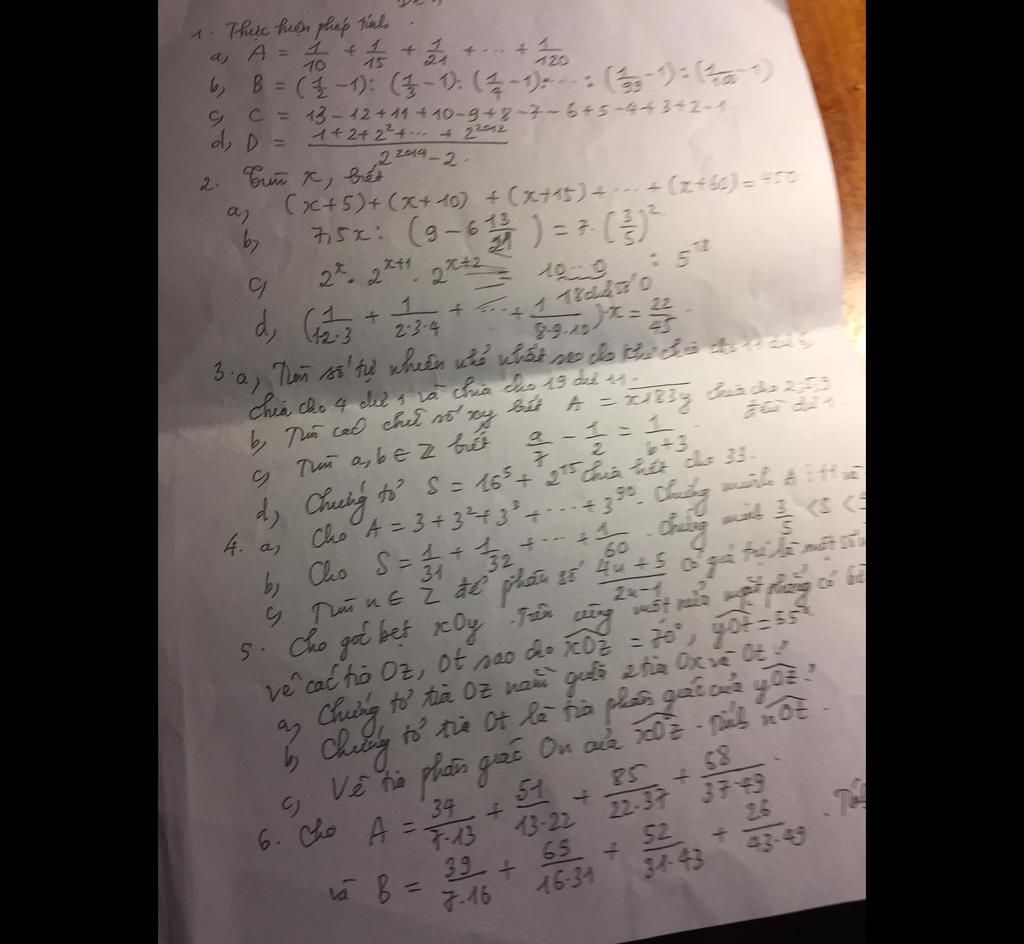 1. Thực hiện phép tính.
a, A = 1/10 + 1/15 + 1/21 + ... + 1/120
b, B = (1/2 - 1) : (1/3 - 1) : (1/4 - 1) : ... : (1/99 - 1) : (1/100 - 1)
c, C = 13 - 12 + 11 + 10 - 9 + 8 - 7 - 6 + 5 - 4 + 3 + 2 - 1
d, D = (1 + 2 + 2² + ... + 2²⁰¹²) / (2²⁰¹⁴ - 2)
2. Tìm x, biết
a, (x+5) + (x+10) + (x+15) + ... + (x+60) = 450
b, 7,5x : (9 - 6 13/21) = 7 · (3/5)²
c, 2ˣ · 2ˣ⁺¹ · 2ˣ⁺² = 10...0 : 5¹⁸
18 chữ số 0
d, (1/12·3 + 1/2·3·4 + ... + 1/8·9·10) · x = 22/45
3. a, Tìm số tự nhiên nhỏ nhất sao cho khi chia cho 11 dư
chia cho 4 dư 1 và chia cho 19 dư 11.
b, Tìm các chữ số xy biết A = x183y chia cho 2, 5, 9
đều dư 1.
c, Tìm a, b ∈ Z biết a/7 - 1/2 = 1/b+3
d, Chứng tỏ S = 16⁵ + 2¹⁵ chia hết cho 33.
4. a, Cho A = 3 + 3² + 3³ + ... + 3⁹⁰. Chứng minh A ⋮ 11 và
b, Cho S = 1/31 + 1/32 + ... + 1/60. Chứng minh 3/5 < S <
c, Tìm n ∈ Z để phân số 4n+5/2n-1 có giá trị là một số
5. Cho góc bẹt xOy. Trên cùng một nửa mặt phẳng có bờ
vẽ các tia Oz, Ot sao cho xOz = 70°, yOt = 55°
a, Chứng tỏ tia Oz nằm giữa 2 tia Ox và Ot?
b, Chứng tỏ tia Ot là tia phân giác của yOz?
c, Vẽ tia phân giác On của xOz. Tính nOt.
6. Cho A = 34/7·13 + 51/13·22 + 85/22·37 + 68/37·49
và B = 39/7·16 + 65/16·31 + 52/31·43 + 26/43·49. Tính